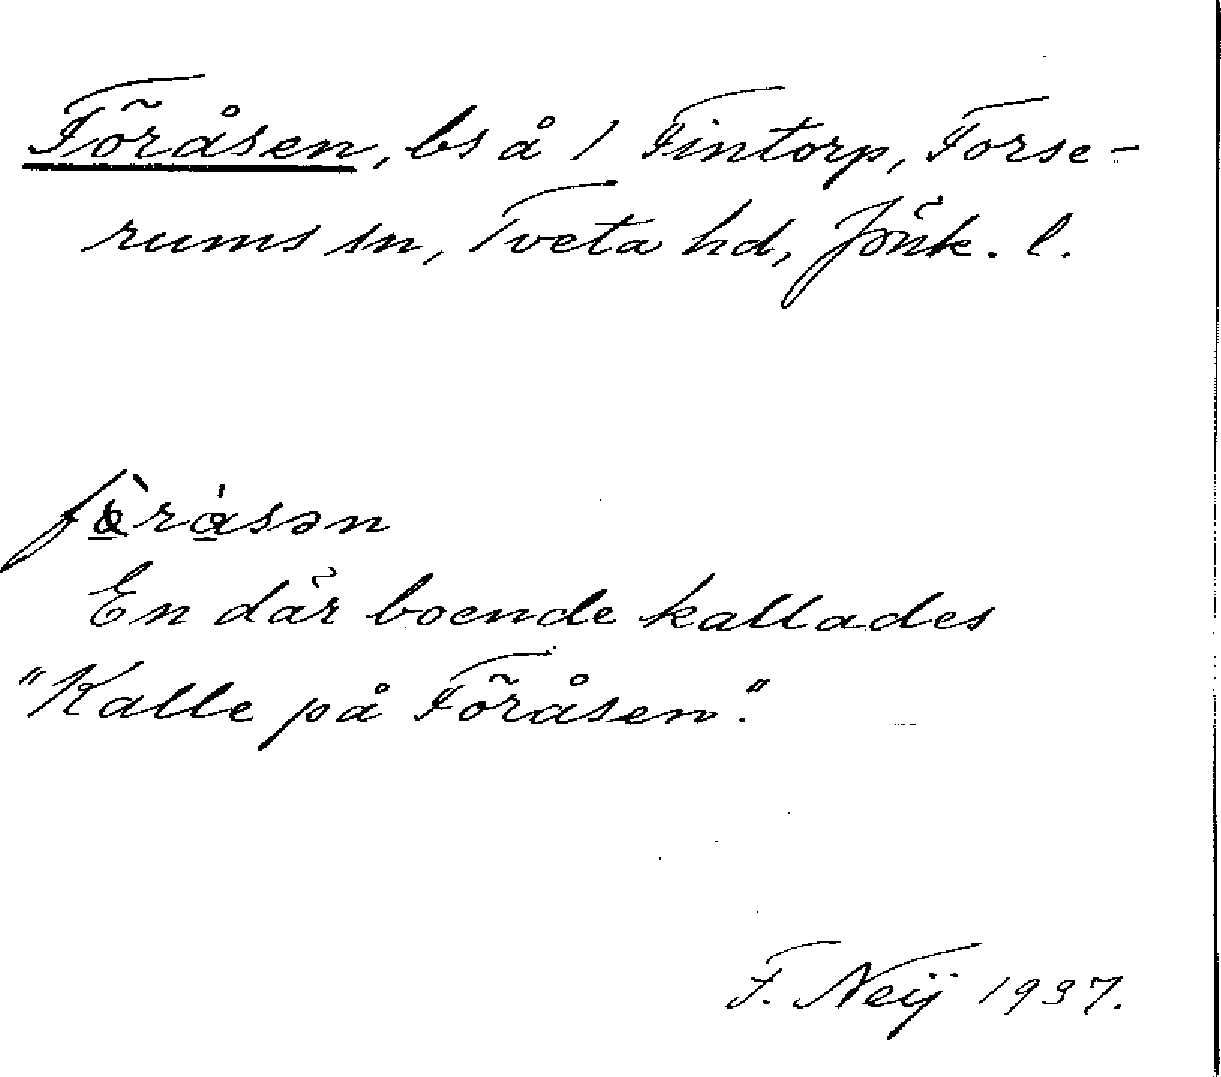 Föråsen, bs å 1 Fintorp, Forse-
rums sn, Tveta hd, Jönk. l.
En där boende kallades
"Kalle på Föråsen".
F. Neij 1937.